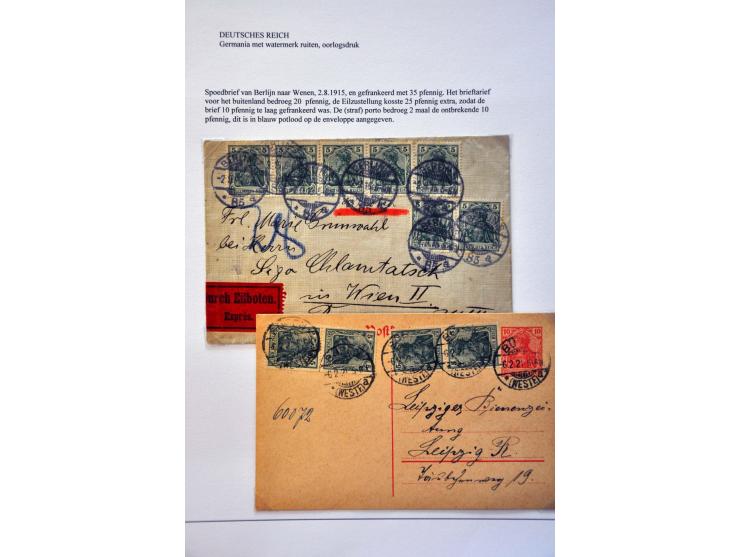 DEUTSCHES REICH
Germania met watermerk ruiten, oorlogsdruk
Spoedbrief van Berlijn naar Wenen, 2.8.1915, en gefrankeerd met 35 pfennig. Het brieftarief
voor het buitenland bedroeg 20 pfennig, de Eilzustellung kosste 25 pfennig extra, zodat de
brief 10 pfennig te laag gefrankeerd was. De (straf) porto bedroeg 2 maal de ontbrekende 10
pfennig, dit is in blauw potlood op de enveloppe aangegeven.
5 5 5 5 5
5
Frl. Marie
bei Herrn
in Wien II
urch Eilboten.
Exprès.
Post
10 10
(WESTF)
60072
Leipziger Bienenzei-
tung
Leipzig R.
19.